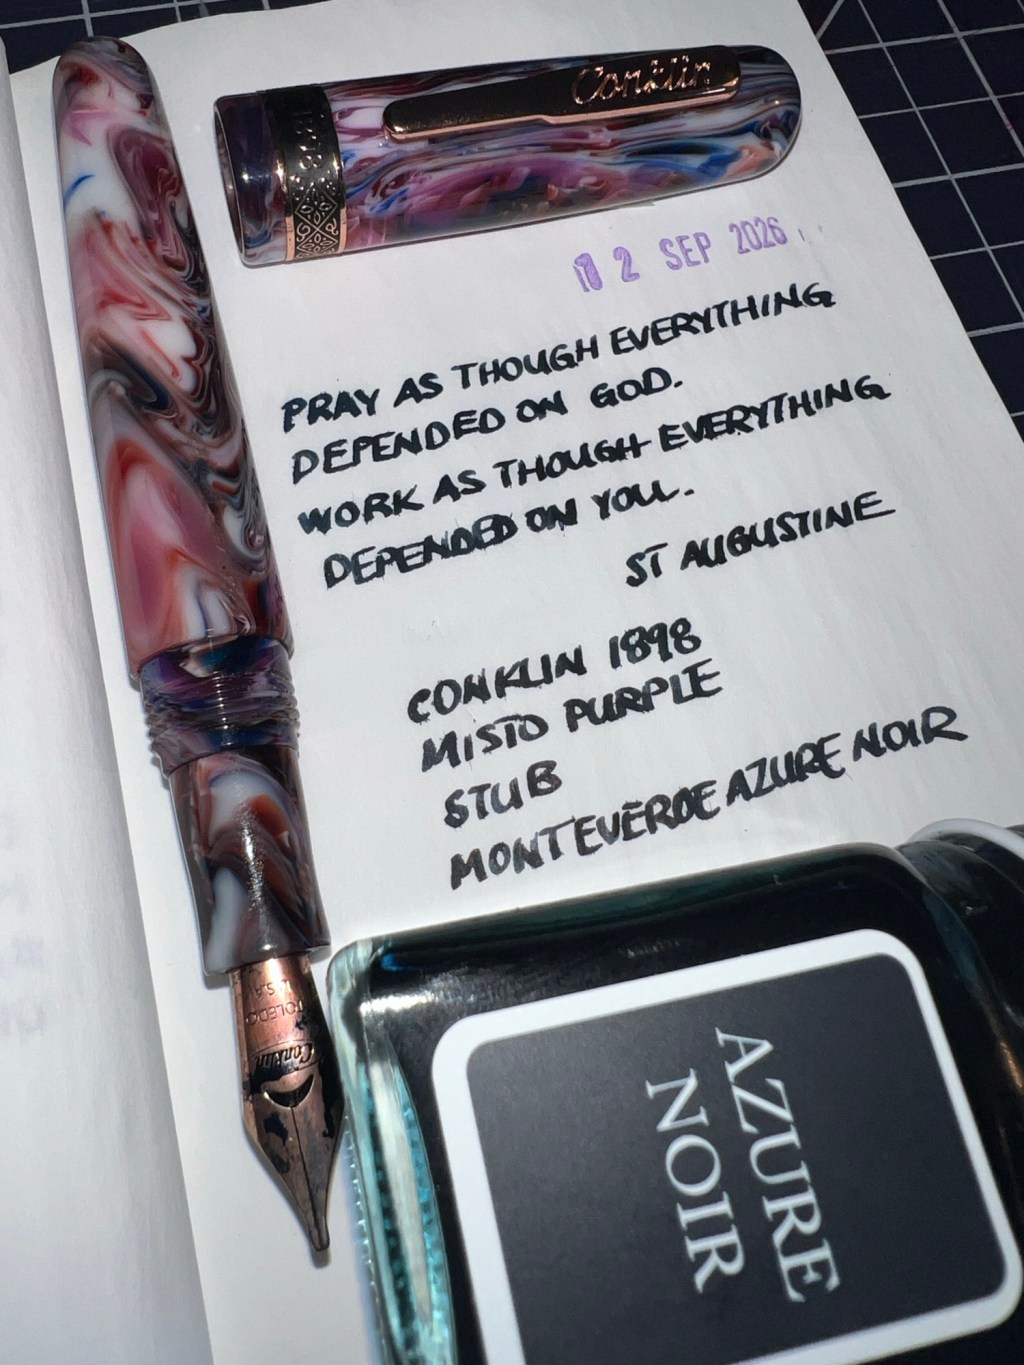 Conklin
1898
12 SEP 2026
PRAY AS THOUGH EVERYTHING
DEPENDED ON GOD.
WORK AS THOUGH EVERYTHING
DEPENDED ON YOU.
ST AUGUSTINE
CONKLIN 1898
MISTO PURPLE
STUB
MONTEVERDE AZURE NOIR
TOLEDO
U.S.A.
Conklin
AZURE
NOIR